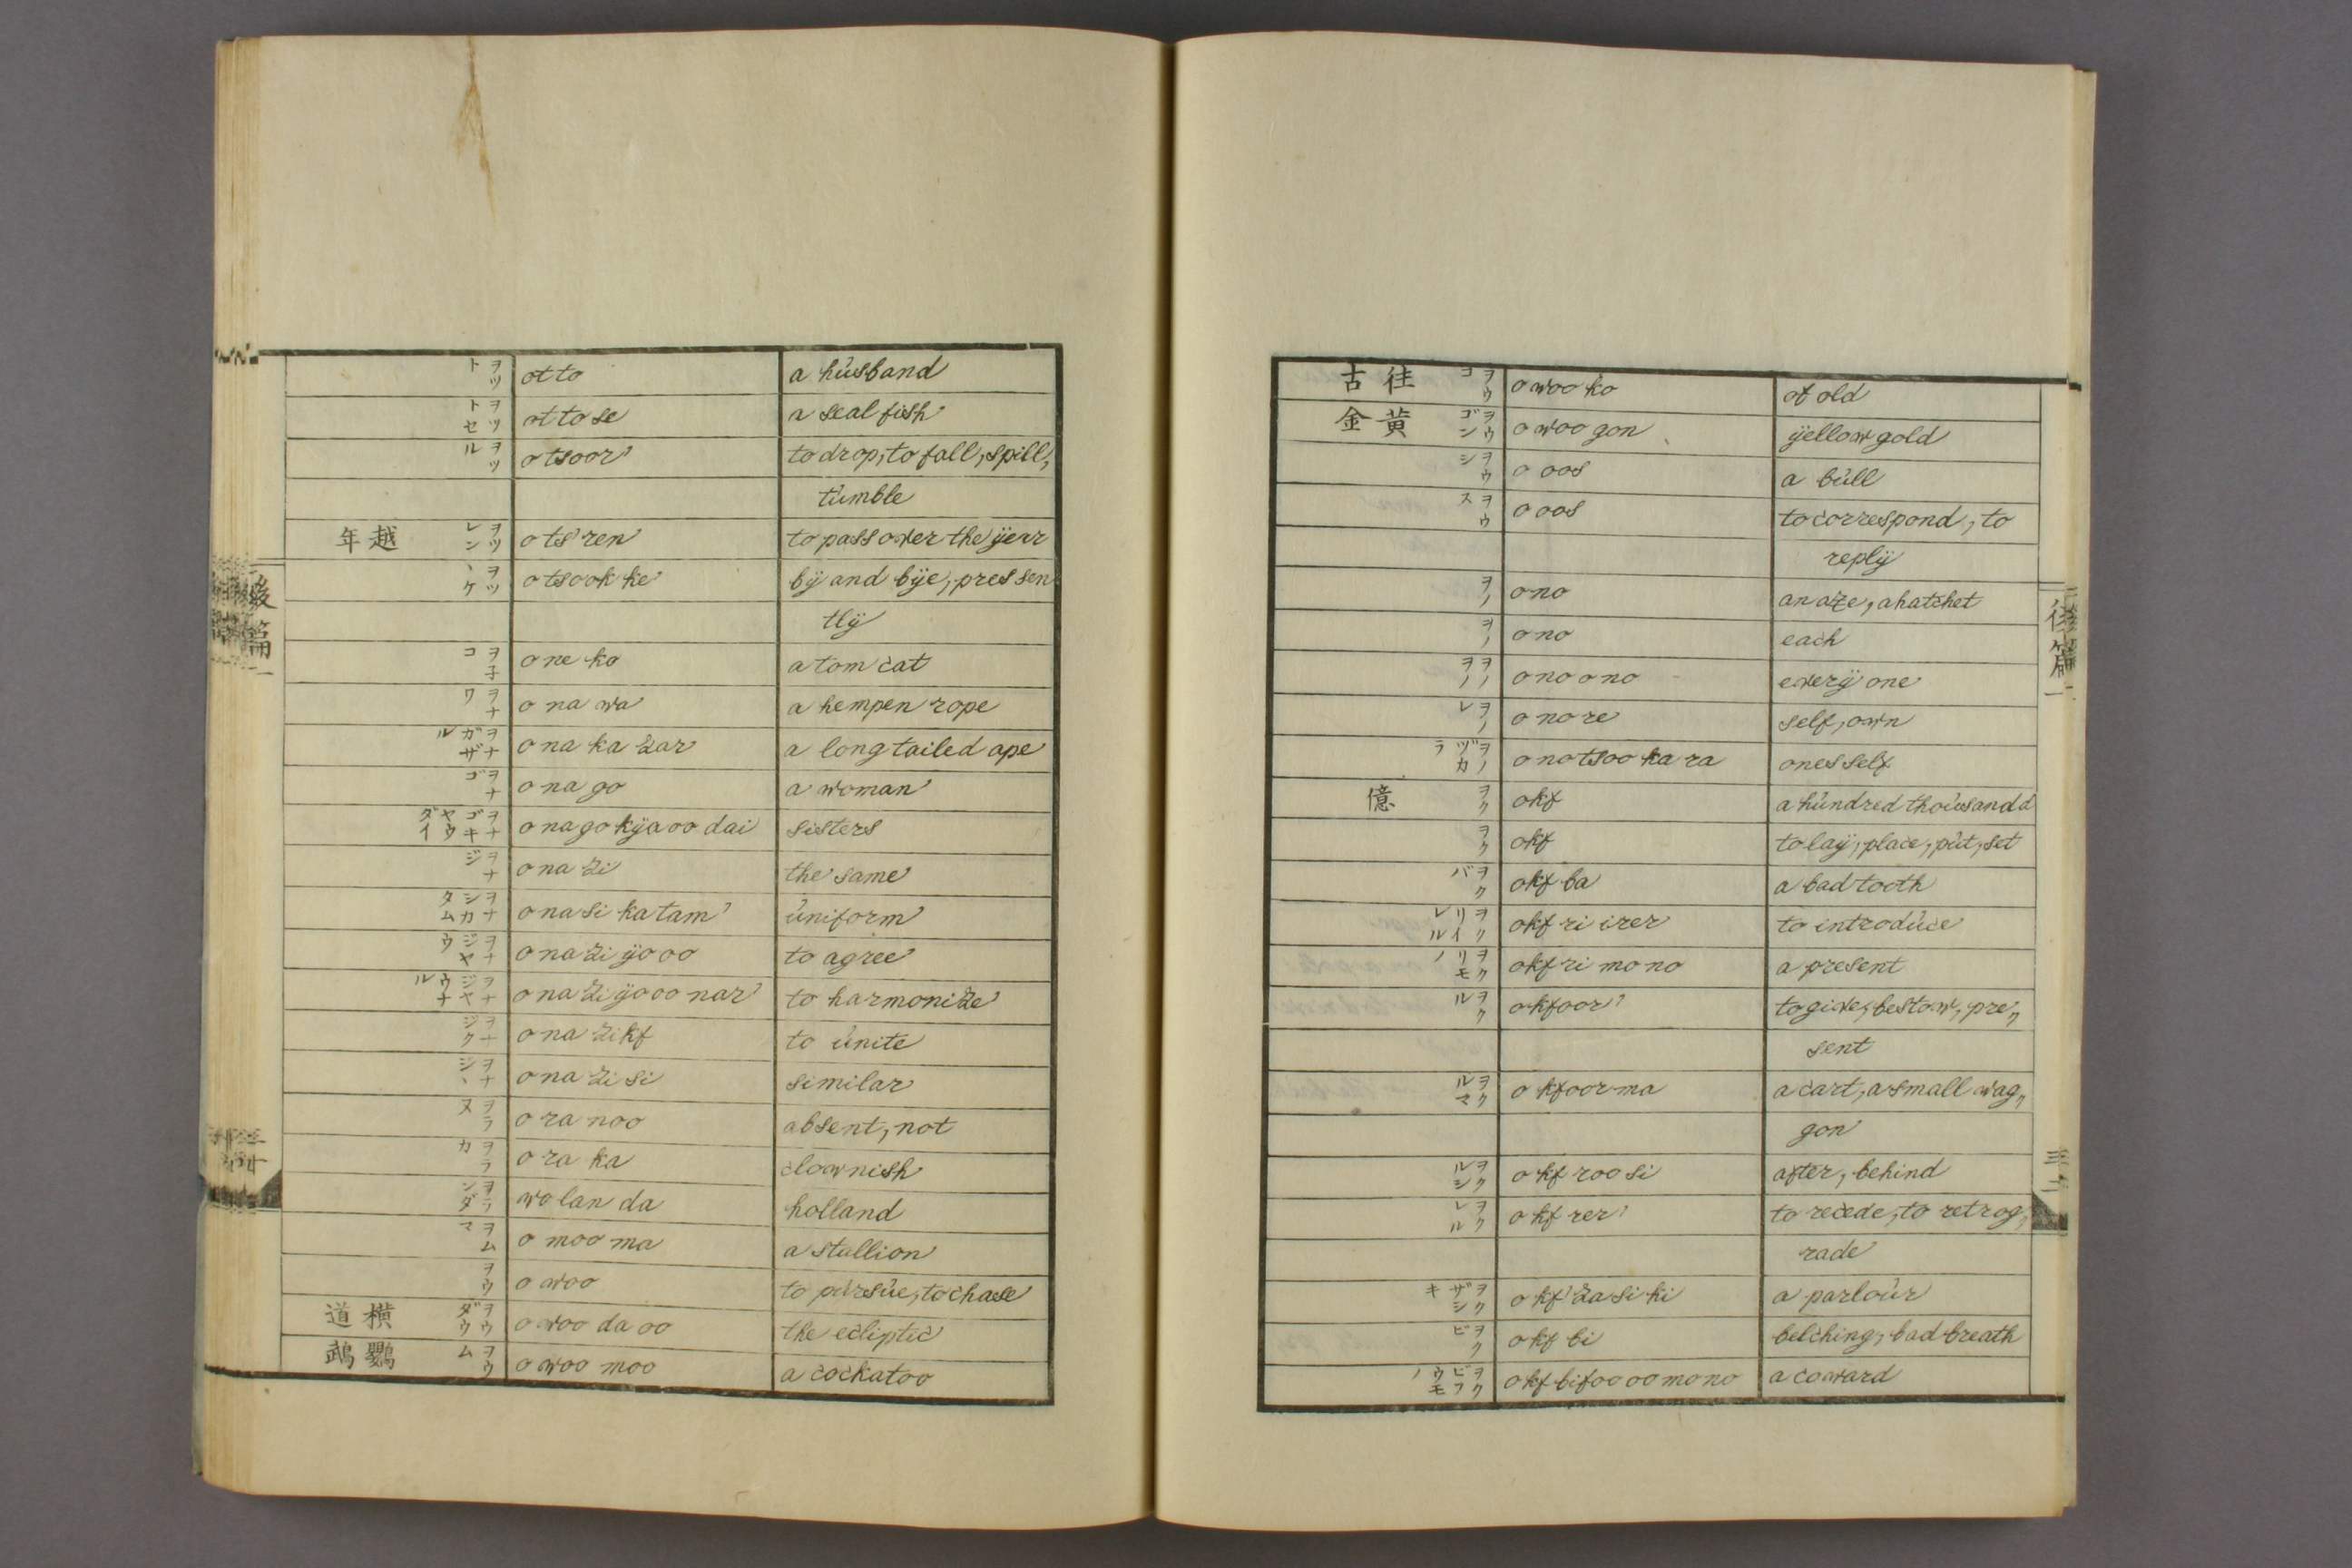 ヲツト otto a husband
ヲツトセ ottose a seal fish
ヲツル otsoor' to drop, to fall, spill,
tumble
越年 ヲツレン ots'ren to pass over the yerr
ヲツヽケ otsookke by and bye, pressen
tly
ヲ子コ oneko a tom cat
ヲナワ onawa a hempen rope
ヲナガザル onakazar a long tailed ape
ヲナゴ onago a woman
ヲナゴキヤウダイ onagokÿaoodai sisters
ヲナジ onazi the same
ヲナシカタム onasikatam' uniform
ヲナジヤウ onaziÿooo to agree
ヲナジヤウナル onaziÿooonar' to harmonize
ヲナジク onazikf to unite
ヲナジヽ onazisi similar
ヲラヌ oranoo absent, not
ヲラカ oraka clownish
ヲランダ wolanda holland
ヲムマ omooma a stallion
ヲウ owoo to pursue, to chase
横道 ヲウダウ owoodaoo the ecliptic
鸚鵡 ヲウム owoomoo a cockatoo
後篇
往古 ヲウコ owooko of old
黄金 ヲウゴン owoogon ÿellow gold
ヲウシ ooos a bull
ヲウス ooos to correspond, to
replÿ
ヲノ ono an aze, a hatchet
ヲノ ono each
ヲノヲノ onoono everÿ one
ヲノレ onore self, own
ヲノヅカラ onotsookara ones self
億 ヲク okf a hundred thousandd
ヲク okf to laÿ, place, put, set
ヲクバ okfba a bad tooth
ヲクリイレル okfriirer to introduce
ヲクリモノ okfrimono a present
ヲクル okfoor' to give, bestow, pre,,
sent
ヲクルマ okfoorma a cart, a small wag,,
gon
ヲクルシ okfroosi after, behind
ヲクレル okfrer' to recede, to retrog,,
rade
ヲクザシキ okf'zasiki a parlour
ヲクビ okfbi belching, bad breath
ヲクビフウモノ okfbifoooomono a coward
後篇一